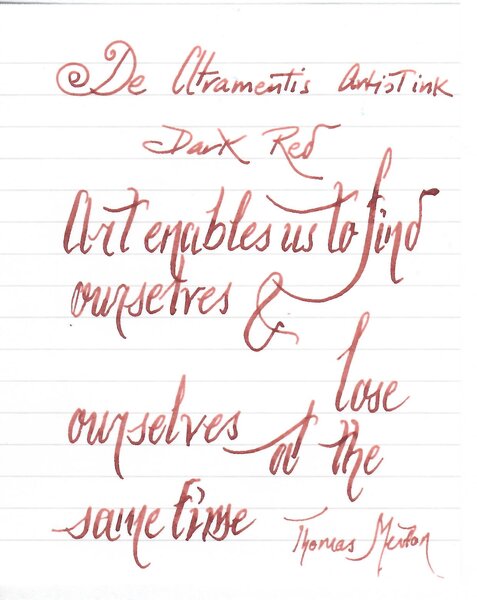 De Atramentis Artist ink
Dark Red
Art enables us to find
ourselves &
lose
ourselves at the
same time
Thomas Merton